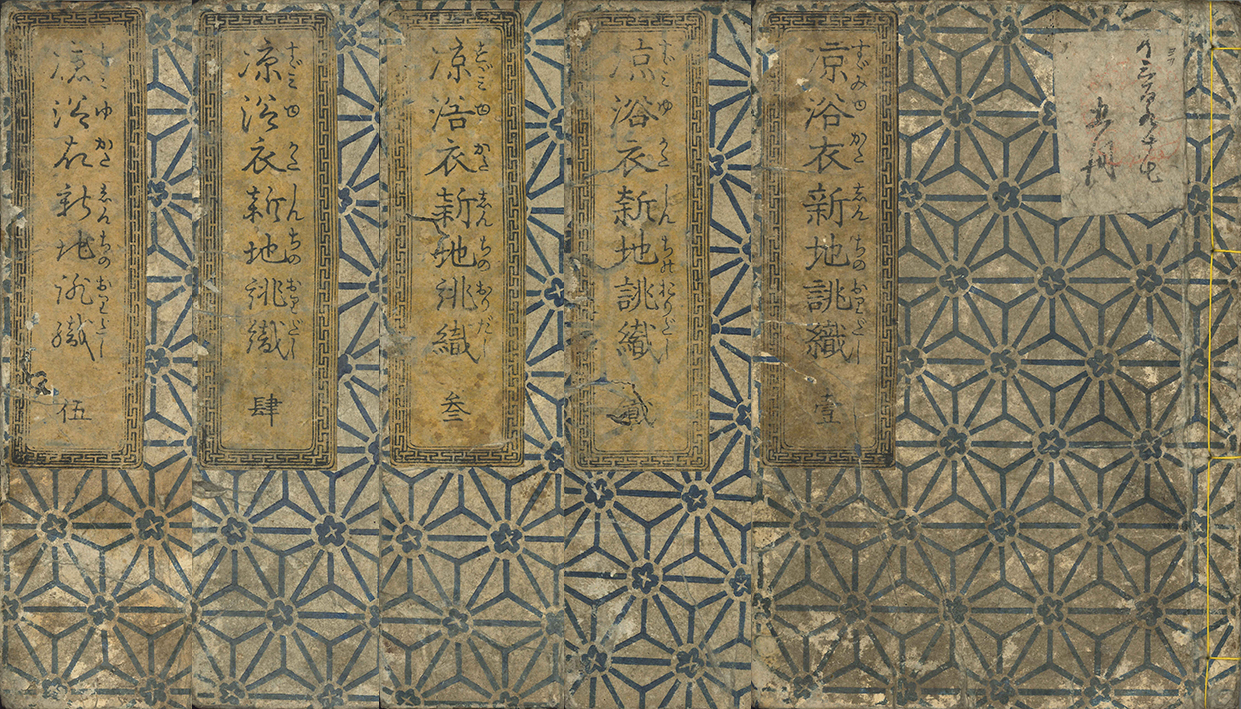 すゞみゆかたしんちのおりだし
凉浴衣新地誂織 壹
すゞみゆかたしんちのおりだし
凉浴衣新地誂織 貳
すゞみゆかたしんちのおりだし
凉浴衣新地絩織 叁
すゞみゆかたしんちのおりだし
凉浴衣新地絩織 肆
すゞみゆかたしんちのおりだし
凉浴衣新地誂織 伍